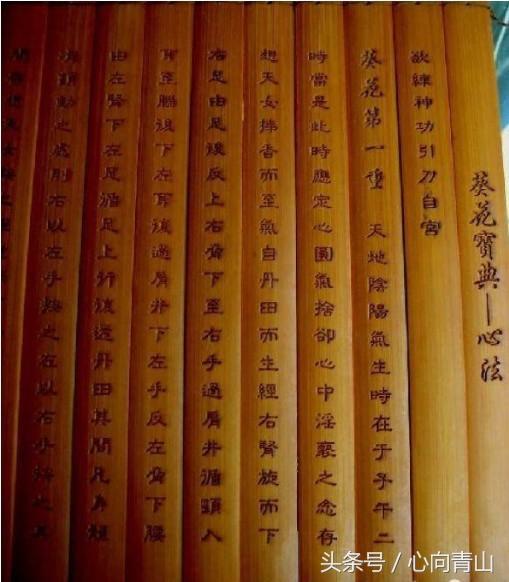 葵花寶典—心法
欲練神功引刀自宮
葵花第一重 天地陰陽氣生時在于子午二
時當是此時應定心圓氣捨卻心中淫褻之念存
想天女捧香而至氣自丹田而生經右腎旋而下
右足由足後反上右脅下至右手過肩井循頸入
耳至腦後下左耳後過肩井下左手反左脅下腰
由左腎下左足循足上行復還丹田其間凡身煩
顫動之處則右以左手之左以右手之其
頭条号／心向青山